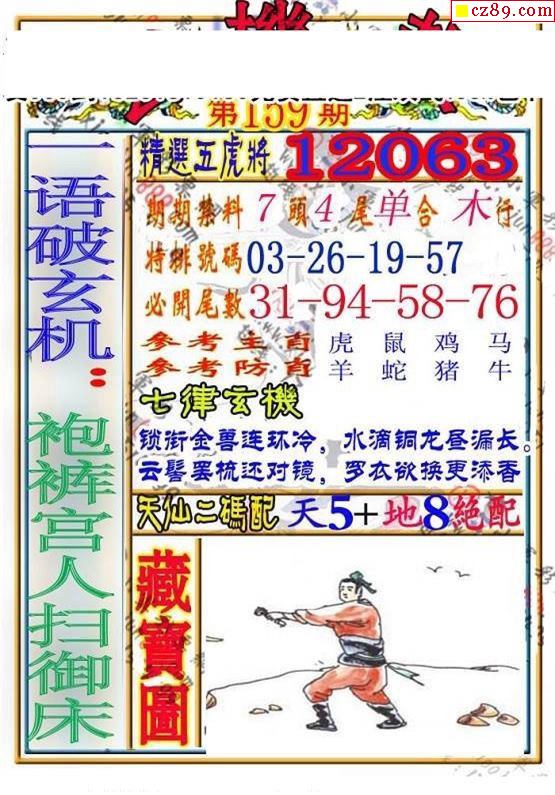 cz89.com
第159期
一语破玄机：
袍裤宫人扫御床
精選五虎將 12063
期期禁料 7頭4尾单合木行
特排號碼 03-26-19-57
必開尾數 31-94-58-76
參考主肖 虎 鼠 鸡 马
參考防肖 羊 蛇 猪 牛
七律玄機
锁衔金兽连环冷，水滴铜龙昼漏长。
云髻罢梳还对镜，罗衣欲换更添香
天仙二碼配 天5+地8絕配
藏寶圖